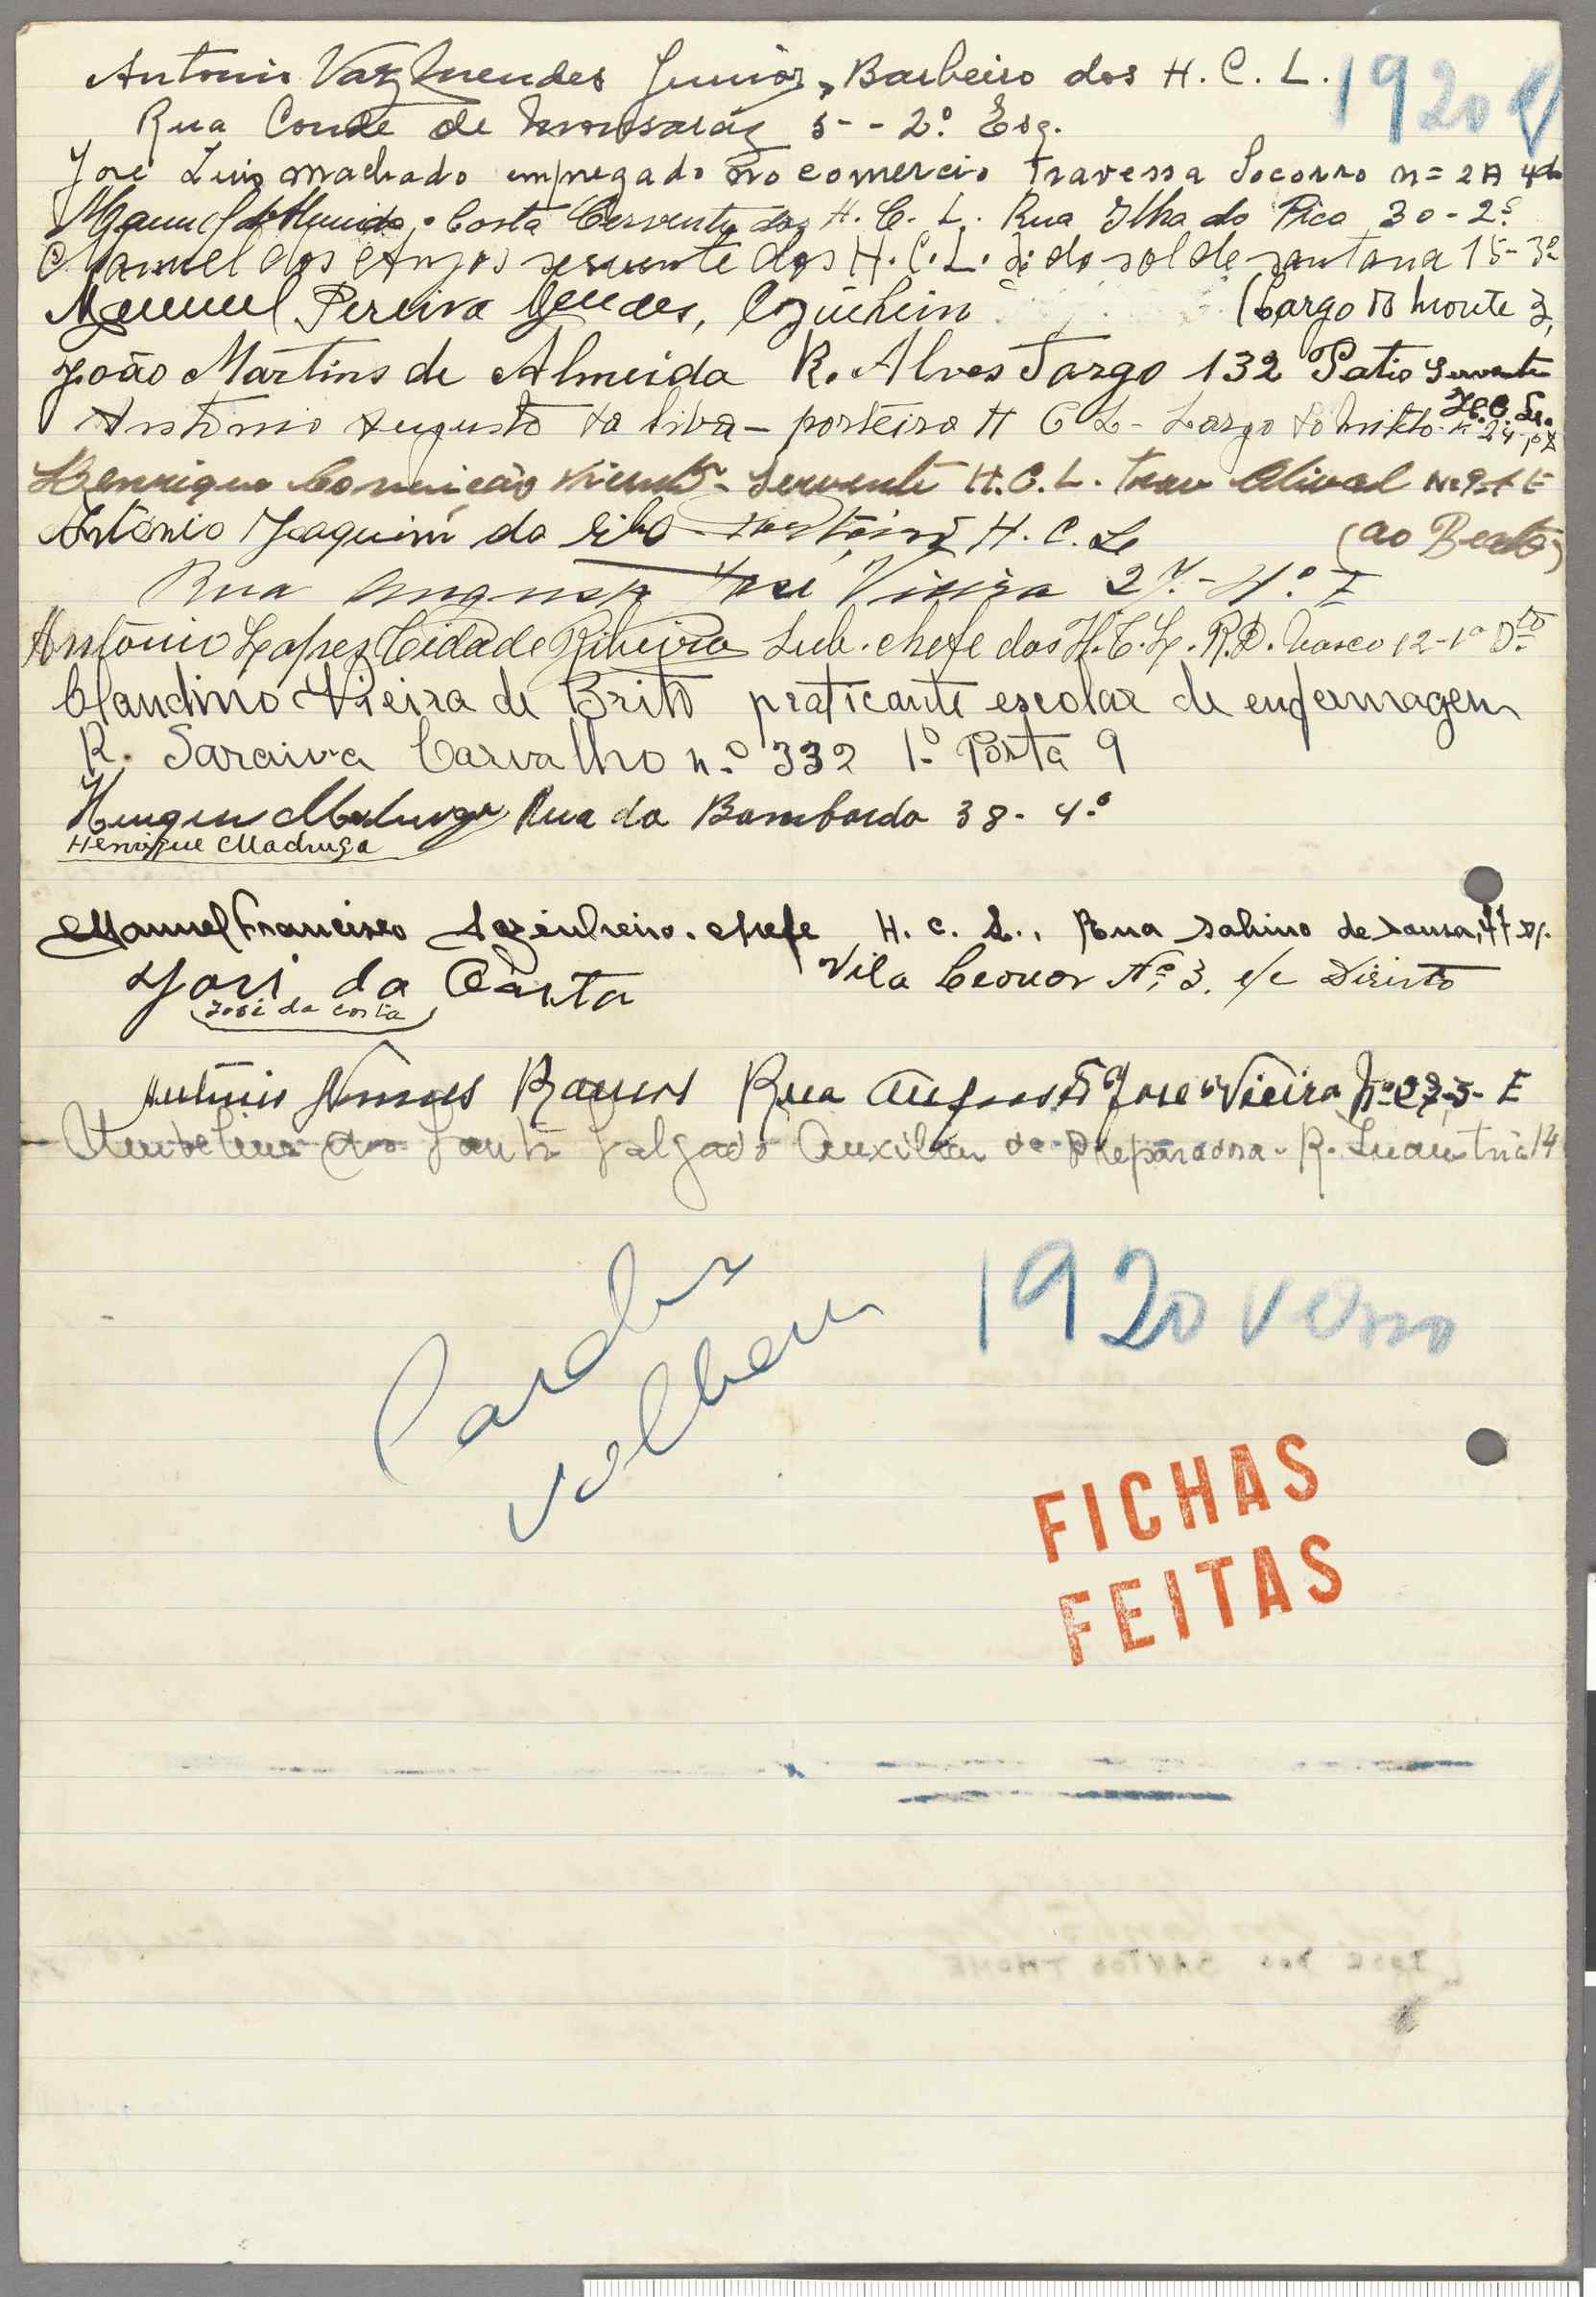 Antonio Vaz Mendes Junior, Barbeiro dos H. C. L. 1920
Rua Conde de Monsaráz 5 - - 2º Esq.
José Luis machado empregado no comercio Travessa Socorro n = 2A 4º
Manuel de Almeida Costa Cervente dos H. C. L. Rua Ilha do Pico 30 - 2º
Manuel dos Anjos servente dos H. C. L. do sol de santana 15 - 3º
Manuel Pereira Mendes, Cozinheiro (Largo do Monte 3,
João Martins de Almeida R. Alves Targo 132 Patio Servente
H. C. L.
António Augusto da Silva - porteiro H C L - Largo do
Henrique Conceição Vicente - Servente H. C. L. Trav Olival Nº 9-1 E
António Joaquim da Silva H. C. L (ao Beato)
Rua Augusto José Vieira 27 - 4º E
António Lopes Cidade Ribeiro Sub. chefe dos H. C. L. R. D. Vasco 12 - 1º Dto
Claudino Vieira de Brito praticante escolar de enfermagem
R. Saraiva Carvalho n.º 332 1º Porta 9
Rua da Bombarda 38 - 4º
Henrique Madruga
Manuel Francisco Cozinheiro. chefe H. C. L., Rua Sabino de Sousa, 47
José da Costa Vila Leonor Nº 3. r/c Direito
José da Costa
António Ramos Rua Augusto José Vieira Nº 27, 3 - E
dos Santos Salgado Auxiliar de Preparadora - R. 14
1920 verso
FICHAS
FEITAS